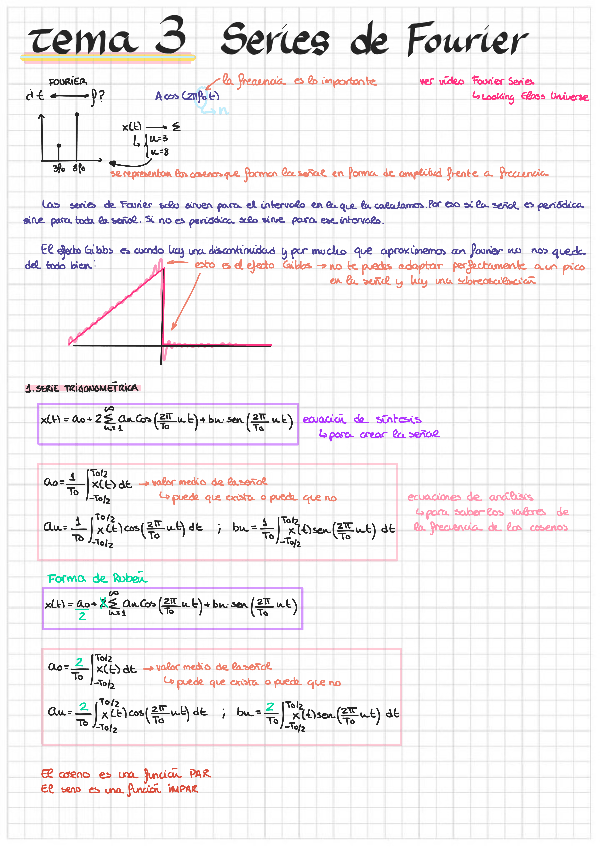 Tema 3 Series de Fourier
FOURIER
d t ⟷ f?
A cos (2πf₀t)
n
la frecuencia es lo importante
ver vídeo Fourier Series
↳ Looking Glass Universe
x(t) → Σ
↳ { n=3
n=8
3f₀ 8f₀
se representan los cosenos que forman la señal en forma de amplitud frente a frecuencia
Las series de Fourier solo sirven para el intervalo en la que la calculamos. Por eso si la señal es periódica
sirve para toda la señal. Si no es periódica solo sirve para ese intervalo.
El efecto Gibbs es cuando hay una discontinuidad y por mucho que aproximemos an fourier no nos queda
del todo bien:
esto es el efecto Gibbs → no te puedes adaptar perfectamente a un pico
en la señal y hay una sobreoscilación
1. SERIE TRIGONOMÉTRICA
x(t) = a₀ + 2 Σ_{n=1}^{∞} an Cos (2π/T₀ n t) + bn sen (2π/T₀ n t)
ecuación de síntesis
↳ para crear la señal
a₀ = 1/T₀ ∫_{-T₀/2}^{T₀/2} x(t) dt → valor medio de la señal
↳ puede que exista o puede que no
an = 1/T₀ ∫_{-T₀/2}^{T₀/2} x(t) cos (2π/T₀ n t) dt ; bn = 1/T₀ ∫_{-T₀/2}^{T₀/2} x(t) sen (2π/T₀ n t) dt
ecuaciones de análisis
↳ para saber los valores de
la frecuencia de los cosenos
Forma de Rubén
x(t) = a₀/2 + 2 Σ_{n=1}^{∞} an Cos (2π/T₀ n t) + bn sen (2π/T₀ n t)
a₀ = 2/T₀ ∫_{-T₀/2}^{T₀/2} x(t) dt → valor medio de la señal
↳ puede que exista o puede que no
an = 2/T₀ ∫_{-T₀/2}^{T₀/2} x(t) cos (2π/T₀ n t) dt ; bn = 2/T₀ ∫_{-T₀/2}^{T₀/2} x(t) sen (2π/T₀ n t) dt
El coseno es una función PAR
El seno es una función IMPAR